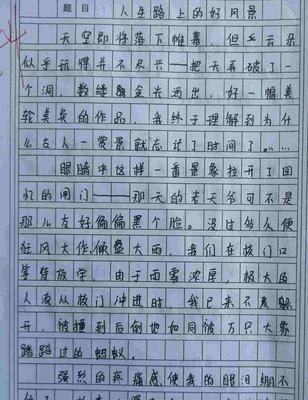 题目：人生路上的好风景
天空即将落下帷幕，但乒云朵
似乎玩得并不尽兴——把天弄破了一
个洞，数缕金光洒出，好一幅美
轮美奂的作品，我终于理解到为什
么古人一赏景就忘记了时间了……
眼睛中这样一番景象拉开了回
忆的闸门——那天的老天爷可不是
那么友好偏偏黑个脸。没过多久便
狂风大作，倾盘大雨，我们在校门口
等等放学。由于雨雾浓厚，极大的
人流从校门冲进时，我已来不及躲
开，被撞到后倒地如同被万只大象
踏踏过的蚂蚁。
强烈的疼痛感使我的眼泪绷不